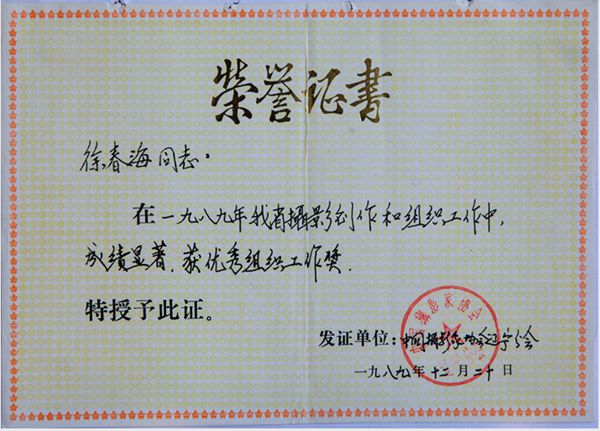 荣誉证书
徐春海同志:
在一九八九年我省攝影创作和组织工作中,
成绩显著,获优秀组织工作奬,
特授予此证。
发证单位:中国攝影家协会辽宁分会
一九八九年十二月二十日